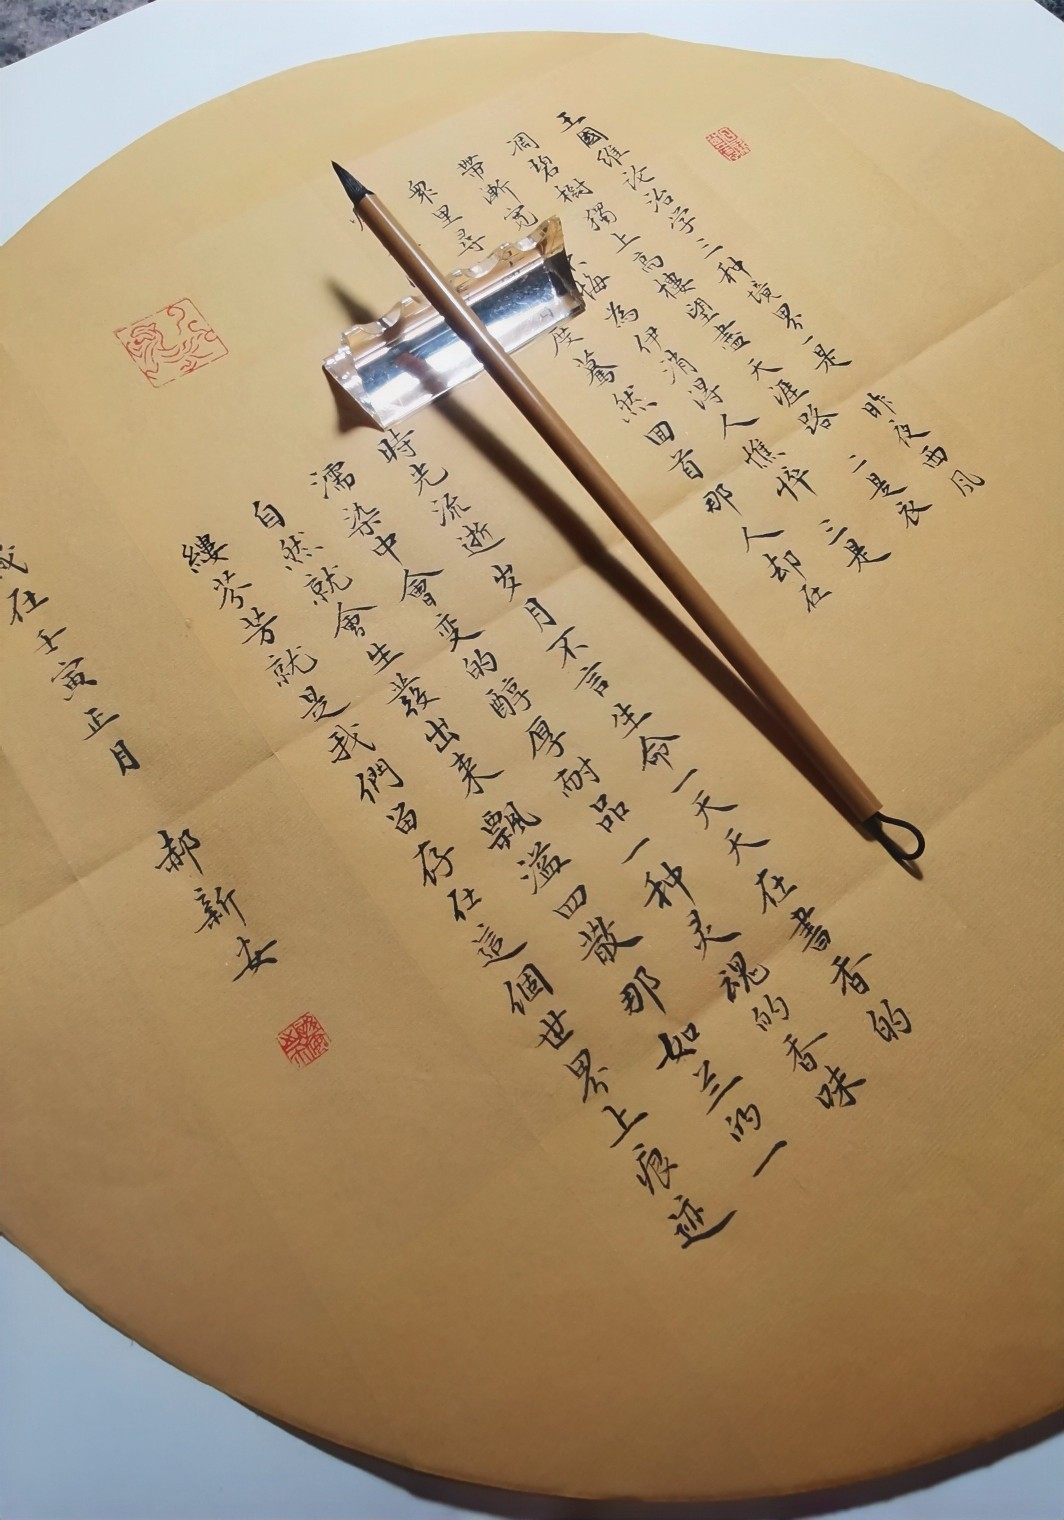 王國維论治学三种境界一是昨夜西风
凋碧樹獨上高樓望盡天涯路二是衣
帶漸寬 悔為伊消得人憔悴三是
衆里尋 度驀然回首那人却在
時光流逝岁月不言生命一天天在書香的
濡染中會变的醇厚耐品一种灵魂的香味
自然就會生發出来飄溢四散那如兰的一
縷芬芳就是我們留存在這個世界上痕迹
在壬寅正月 郝新安